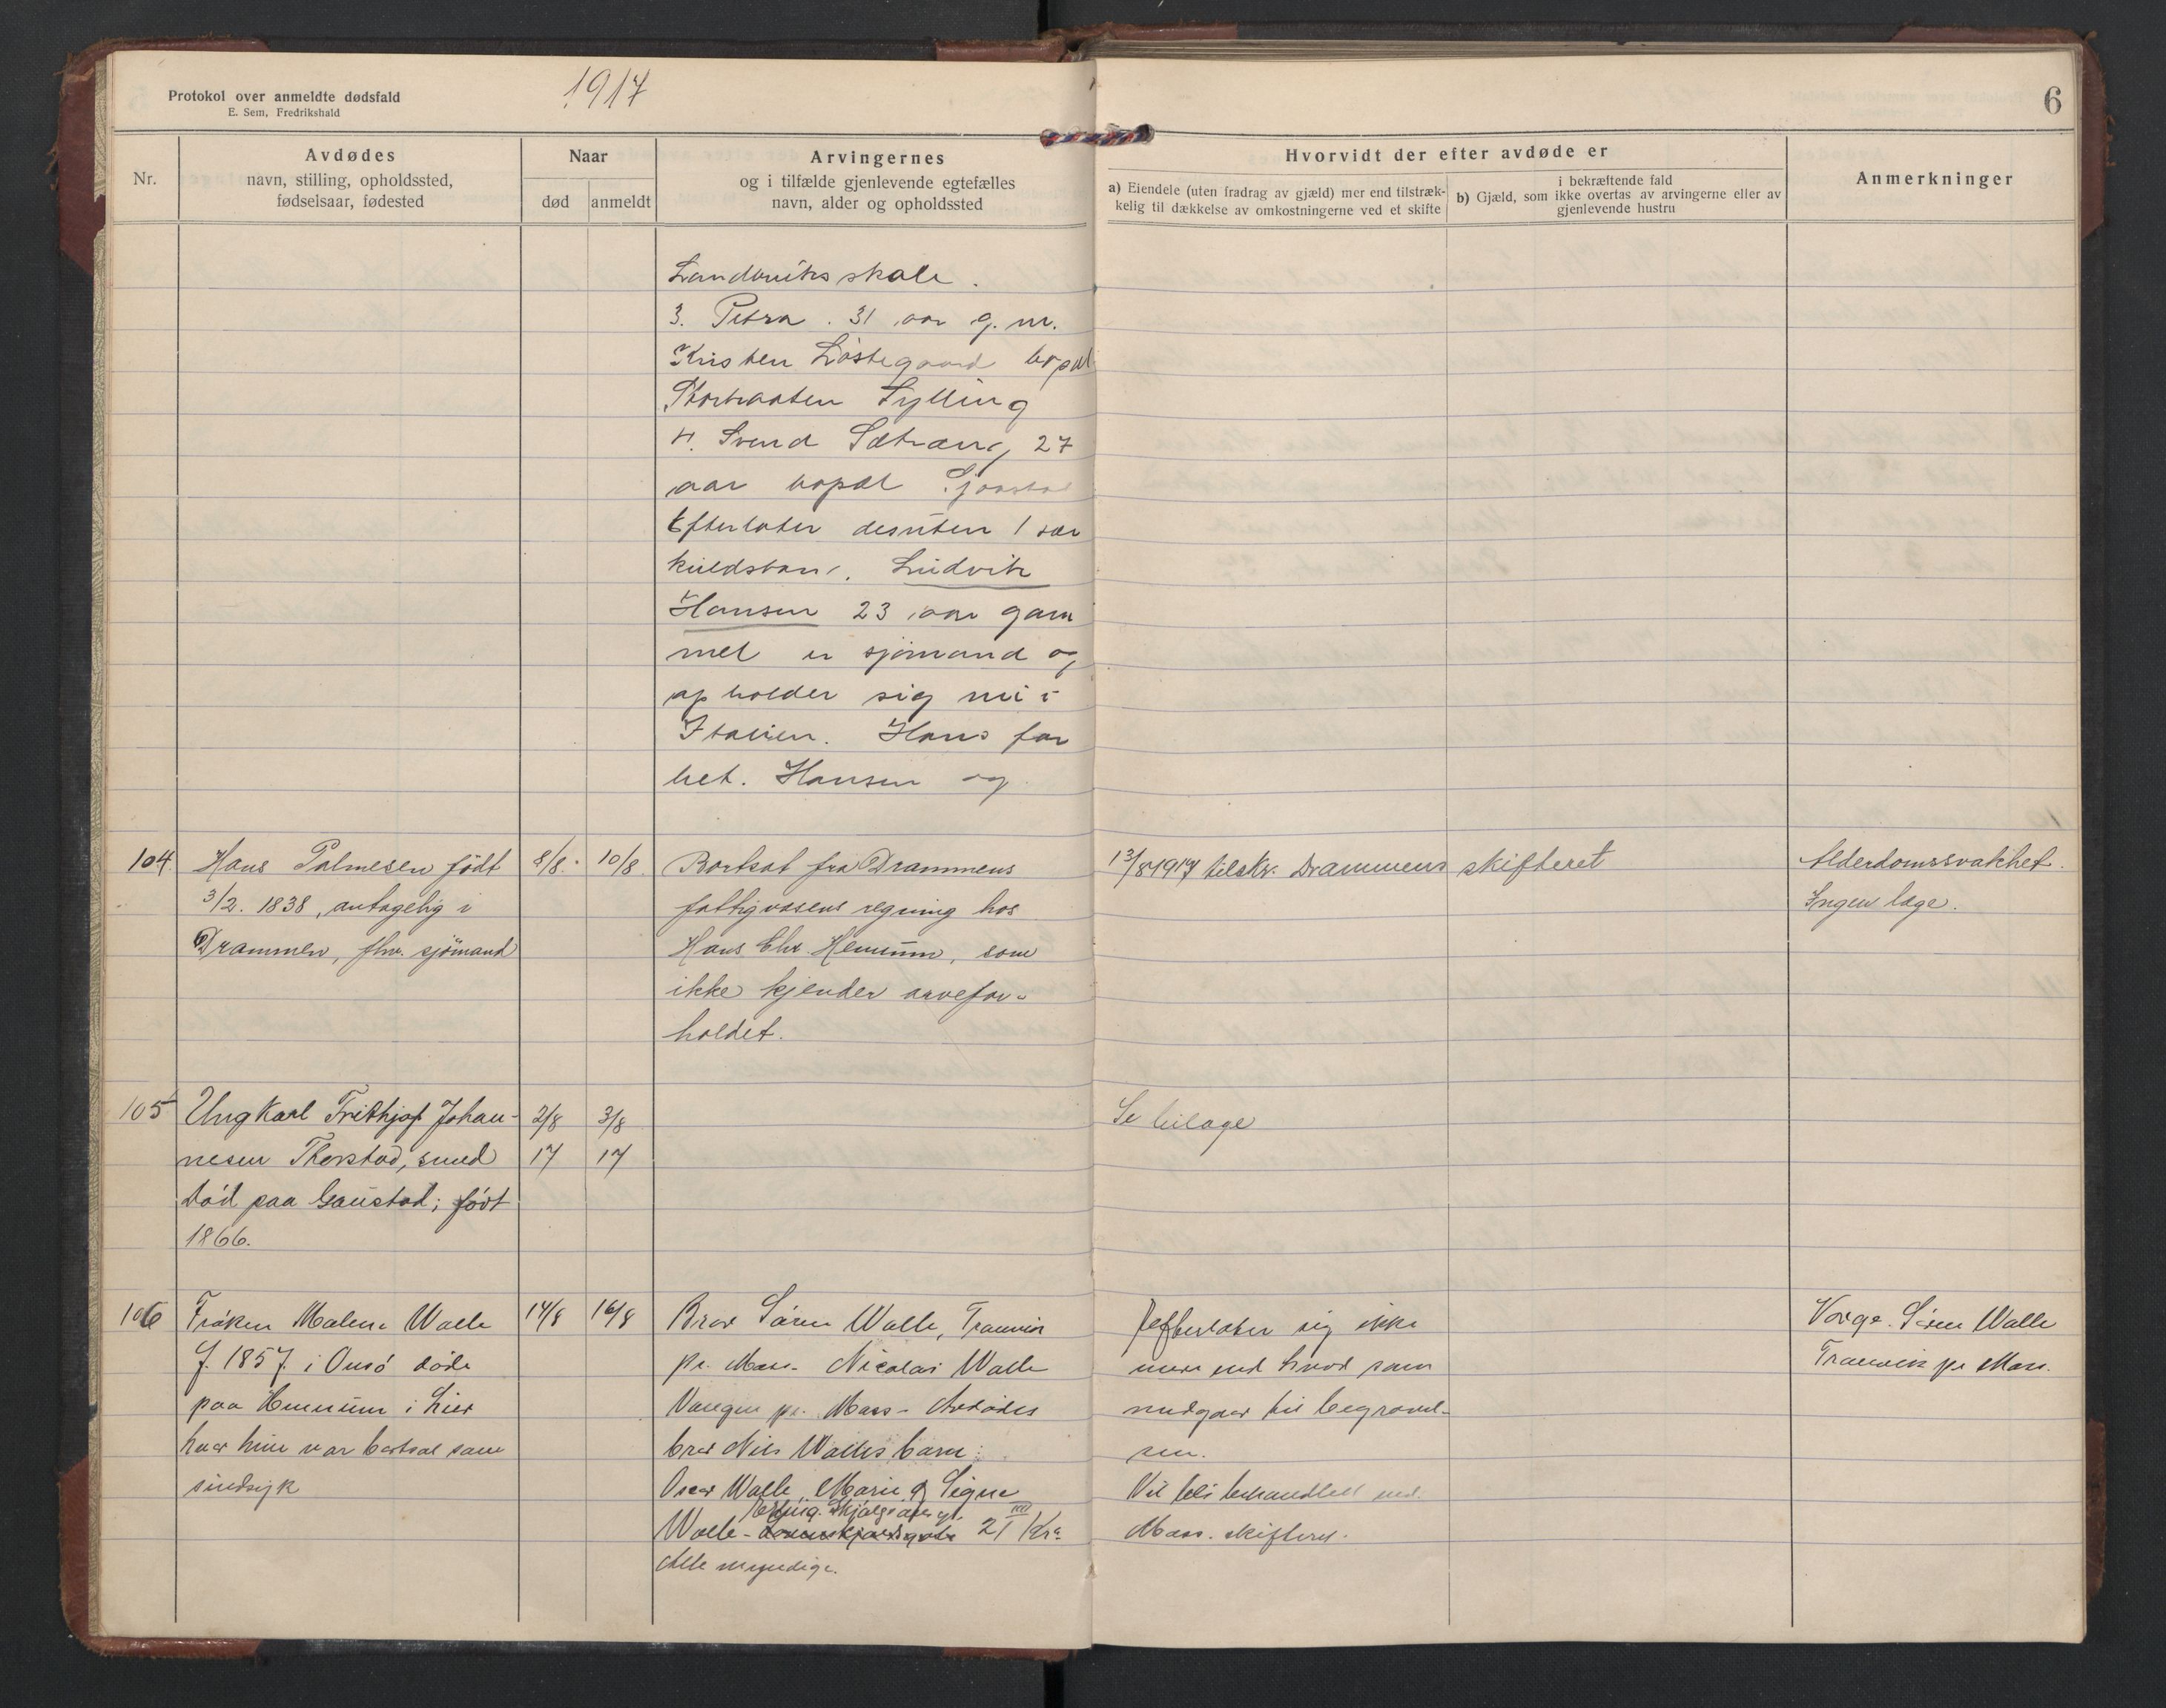 1917
6
Protokol over anmeldte dødsfald
E. Sem, Fredrikshald
Nr.
Avdødes
navn, stilling, opholdssted,
fødselsaar, fødested
Naar
død
anmeldt
Arvingernes
og i tilfælde gjenlevende egtefælles
navn, alder og opholdssted
Hvorvidt der efter avdøde er
a) Eiendele (uten fradrag av gjæld) mer end tilstræk-
kelig til dækkelse av omkostningerne ved et skifte
i bekræftende fald
b) Gjæld, som ikke overtas av arvingerne eller av
gjenlevende hustru
Anmerkninger
Landviks skole.
3. Petra. 31 aar g. m.
Kristen bopæl
Sylling
4. Svend Sætrang 27
aar bopæl
Efterlater desuten 1 sær
kuldsbarn, Ludvik
Hansen 23 aar gam
mel er sjømand og
opholder sig nu i
Italien. Hans far
het. Hansen og
104.
Hans Palmesen født
3/2. 1838, antagelig i
Drammen, fhv. sjömand
8/8.
10/8
Bortsat fra Drammens
fattigvæsens regning hos
Hans Chr. Hennum, som
ikke kjender arvefor-
holdet.
13/8 1917 tilskr. Drammens skifteret
Alderdomssvakhet.
Ingen læge.
105
Ungkarl Frithjof Johan-
nesen Thorstad,
død paa Gaustad; født
1866.
2/8
17
3/8
17
Se bilage
106
Frøken Malene Walle
f. 1857 i Onsö døde
paa Hennum i Lier
hvor hun var bortsat som
sindsyk
14/8
16/8
Bror Sören Walle, Tronvik
pr. Moss. Nicolai Walle
Vangen pr. Moss - Avdödes
bror Nils Walles barn:
Oscar Walle, Marie og Signe
Walle - 21 III Kra
Alle myndige.
Efterlater sig ikke
mere end hvad som
medgaar til begravel-
sen.
Vil bli behandlet ved
Moss. skifteret.
Værge. Sören Walle
Tronvik pr Moss.